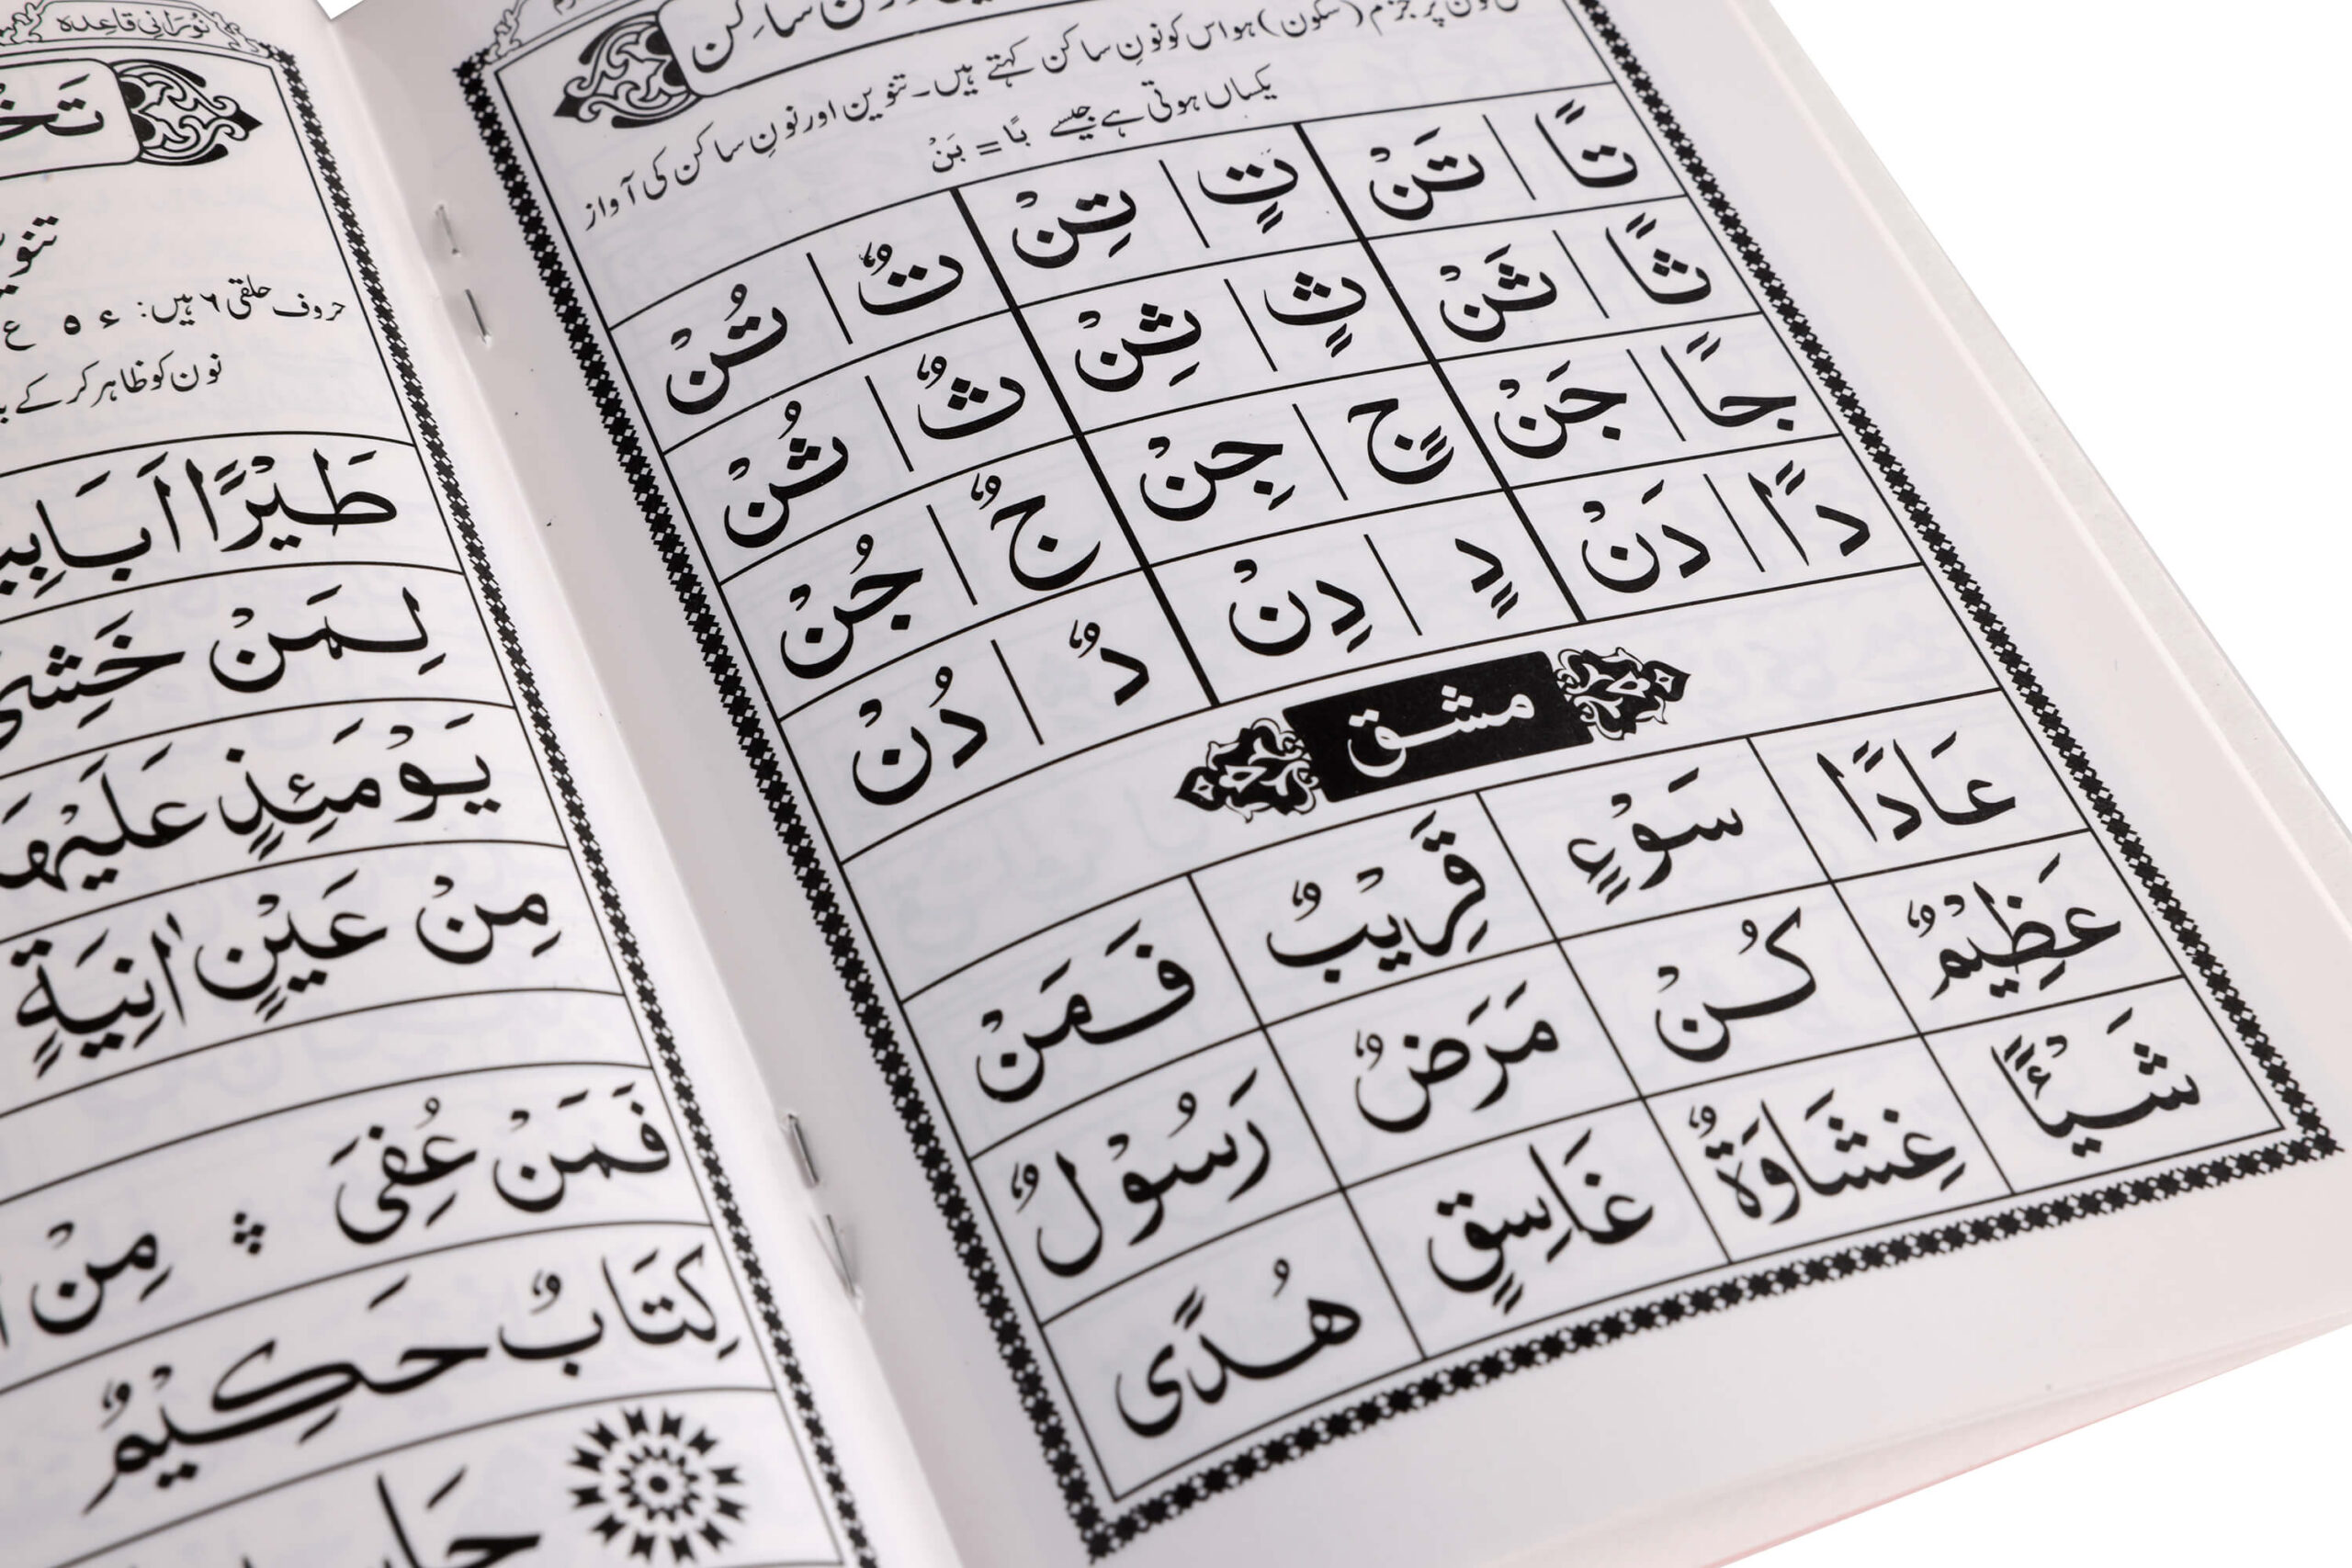 ساکن
ن پر جزم (سکون) ہو اس کو نونِ ساکن کہتے ہیں۔ تنوین اور نونِ ساکن کی آواز
یکساں ہوتی ہے جیسے بًا = بَنْ
تًا تَنْ تٍ تِنْ تٌ تُنْ
ثًا ثَنْ ثٍ ثِنْ ثٌ ثُنْ
جًا جَنْ جٍ جِنْ جٌ جُنْ
دًا دَنْ دٍ دِنْ دٌ دُنْ
مشق
عَادًا سَوْءٍ قَرِيْبٌ فَمَنْ
عَظِيْمٌ كُنْ مَرَضٌ رَسُوْلٌ
شَيْـًٔا غِشَاوَةٌ غَاسِقٍ هُدًى
نورانی قاعدہ
حروف حلقی ۶ ہیں: ء ہ ع
نون کو ظاہر کر کے
طَيْرًا اَبَابِيـ
لِمَنْ خَشِيَ
يَوْمَئِذٍ عَلَيْهَا
مِنْ عَيْنٍ اٰنِيَةٍ
فَمَنْ عُفِيَ ؞ مِنْ
كِتَابٌ حَكِيْمٌ